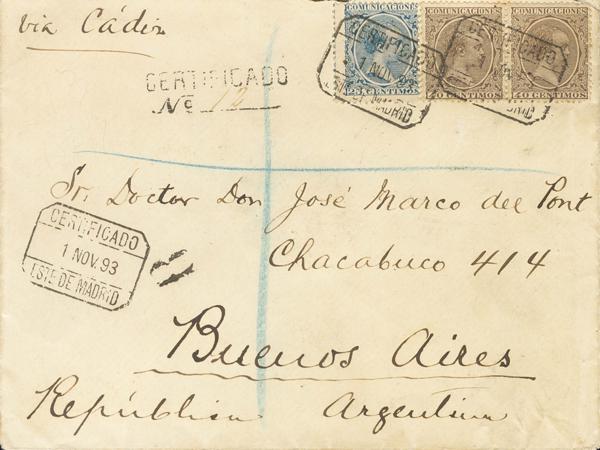 via Cádiz
COMUNICACIONES COMUNICACIONES COMUNICACIONES
25 CENTIMOS 40 CENTIMOS 40 CENTIMOS
CERTIFICADO
1 NOV 93
MADRID
CERTIFICADO
CERTIFICADO
No 12
Sr. Doctor Don José Marco del Pont
Chacabuco 414
CERTIFICADO
1 NOV. 93
ESTE DE MADRID
Buenos Aires
República Argentina